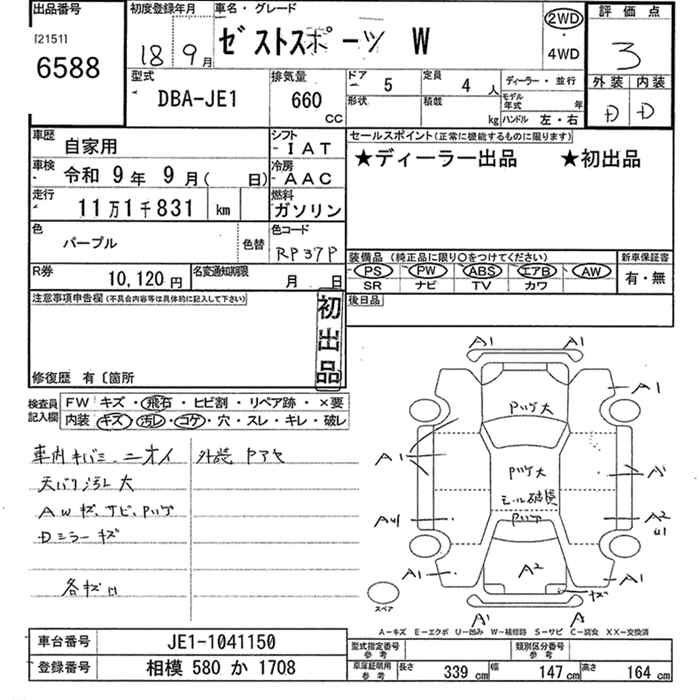 出品番号 初度登録年月 車名・グレード 2WD 評価点
[2151]
6588 18年 9月 ゼストスポーツ W ・ 4WD 3
型式 排気量 ドア 5 定員 4人 ディーラー・並行 外装 内装
DBA-JE1 660 CC 形状 積載 kg モデル年式 年 D D
ハンドル 左・右
車歴 自家用 シフト IAT セールスポイント(正常に機能するものに限ります)
車検 令和 9年 9月( 日) 冷房 AAC ★ディーラー出品 ★初出品
走行 11万1千831 km 燃料 ガソリン
色 パープル 色替 色コード RP37P
装備品 (純正品に限り○をつけてください) 新車保証書
R券 10,120円 名変通知期限 月 日 PS PW ABS エアB AW 有・無
SR ナビ TV カワ
注意事項申告欄(不具合内容等は具体的に記入して下さい) 初出品 後日品
修復歴 有〔箇所
検査員記入欄 FW キズ・飛石・ヒビ割・リペア跡・×要
内装 キズ・汚レ・コゲ・穴・スレ・キレ・破レ
車内キバミ、ニオイ 外装 Pアセ
天バリ汚レ大
AWキズ、サビ、Pハゲ
Dミラーキズ
各キズ凹
A1 A1
A1
Pハゲ大
A1 Pハゲ大 A1
モール破損
AU1 Pハゲ A2
U1
A1 A2 A1
キズ
スペア A1 A
A-キズ E-エクボ U-凹み W-補修跡 S-サビ C-腐食 XX-交換済
車台番号 JE1-1041150 型式指定番号 参考 類別区分番号 参考
登録番号 相模 580 か 1708 車庫証明用 参考 長さ 339cm 幅 147cm 高さ 164cm